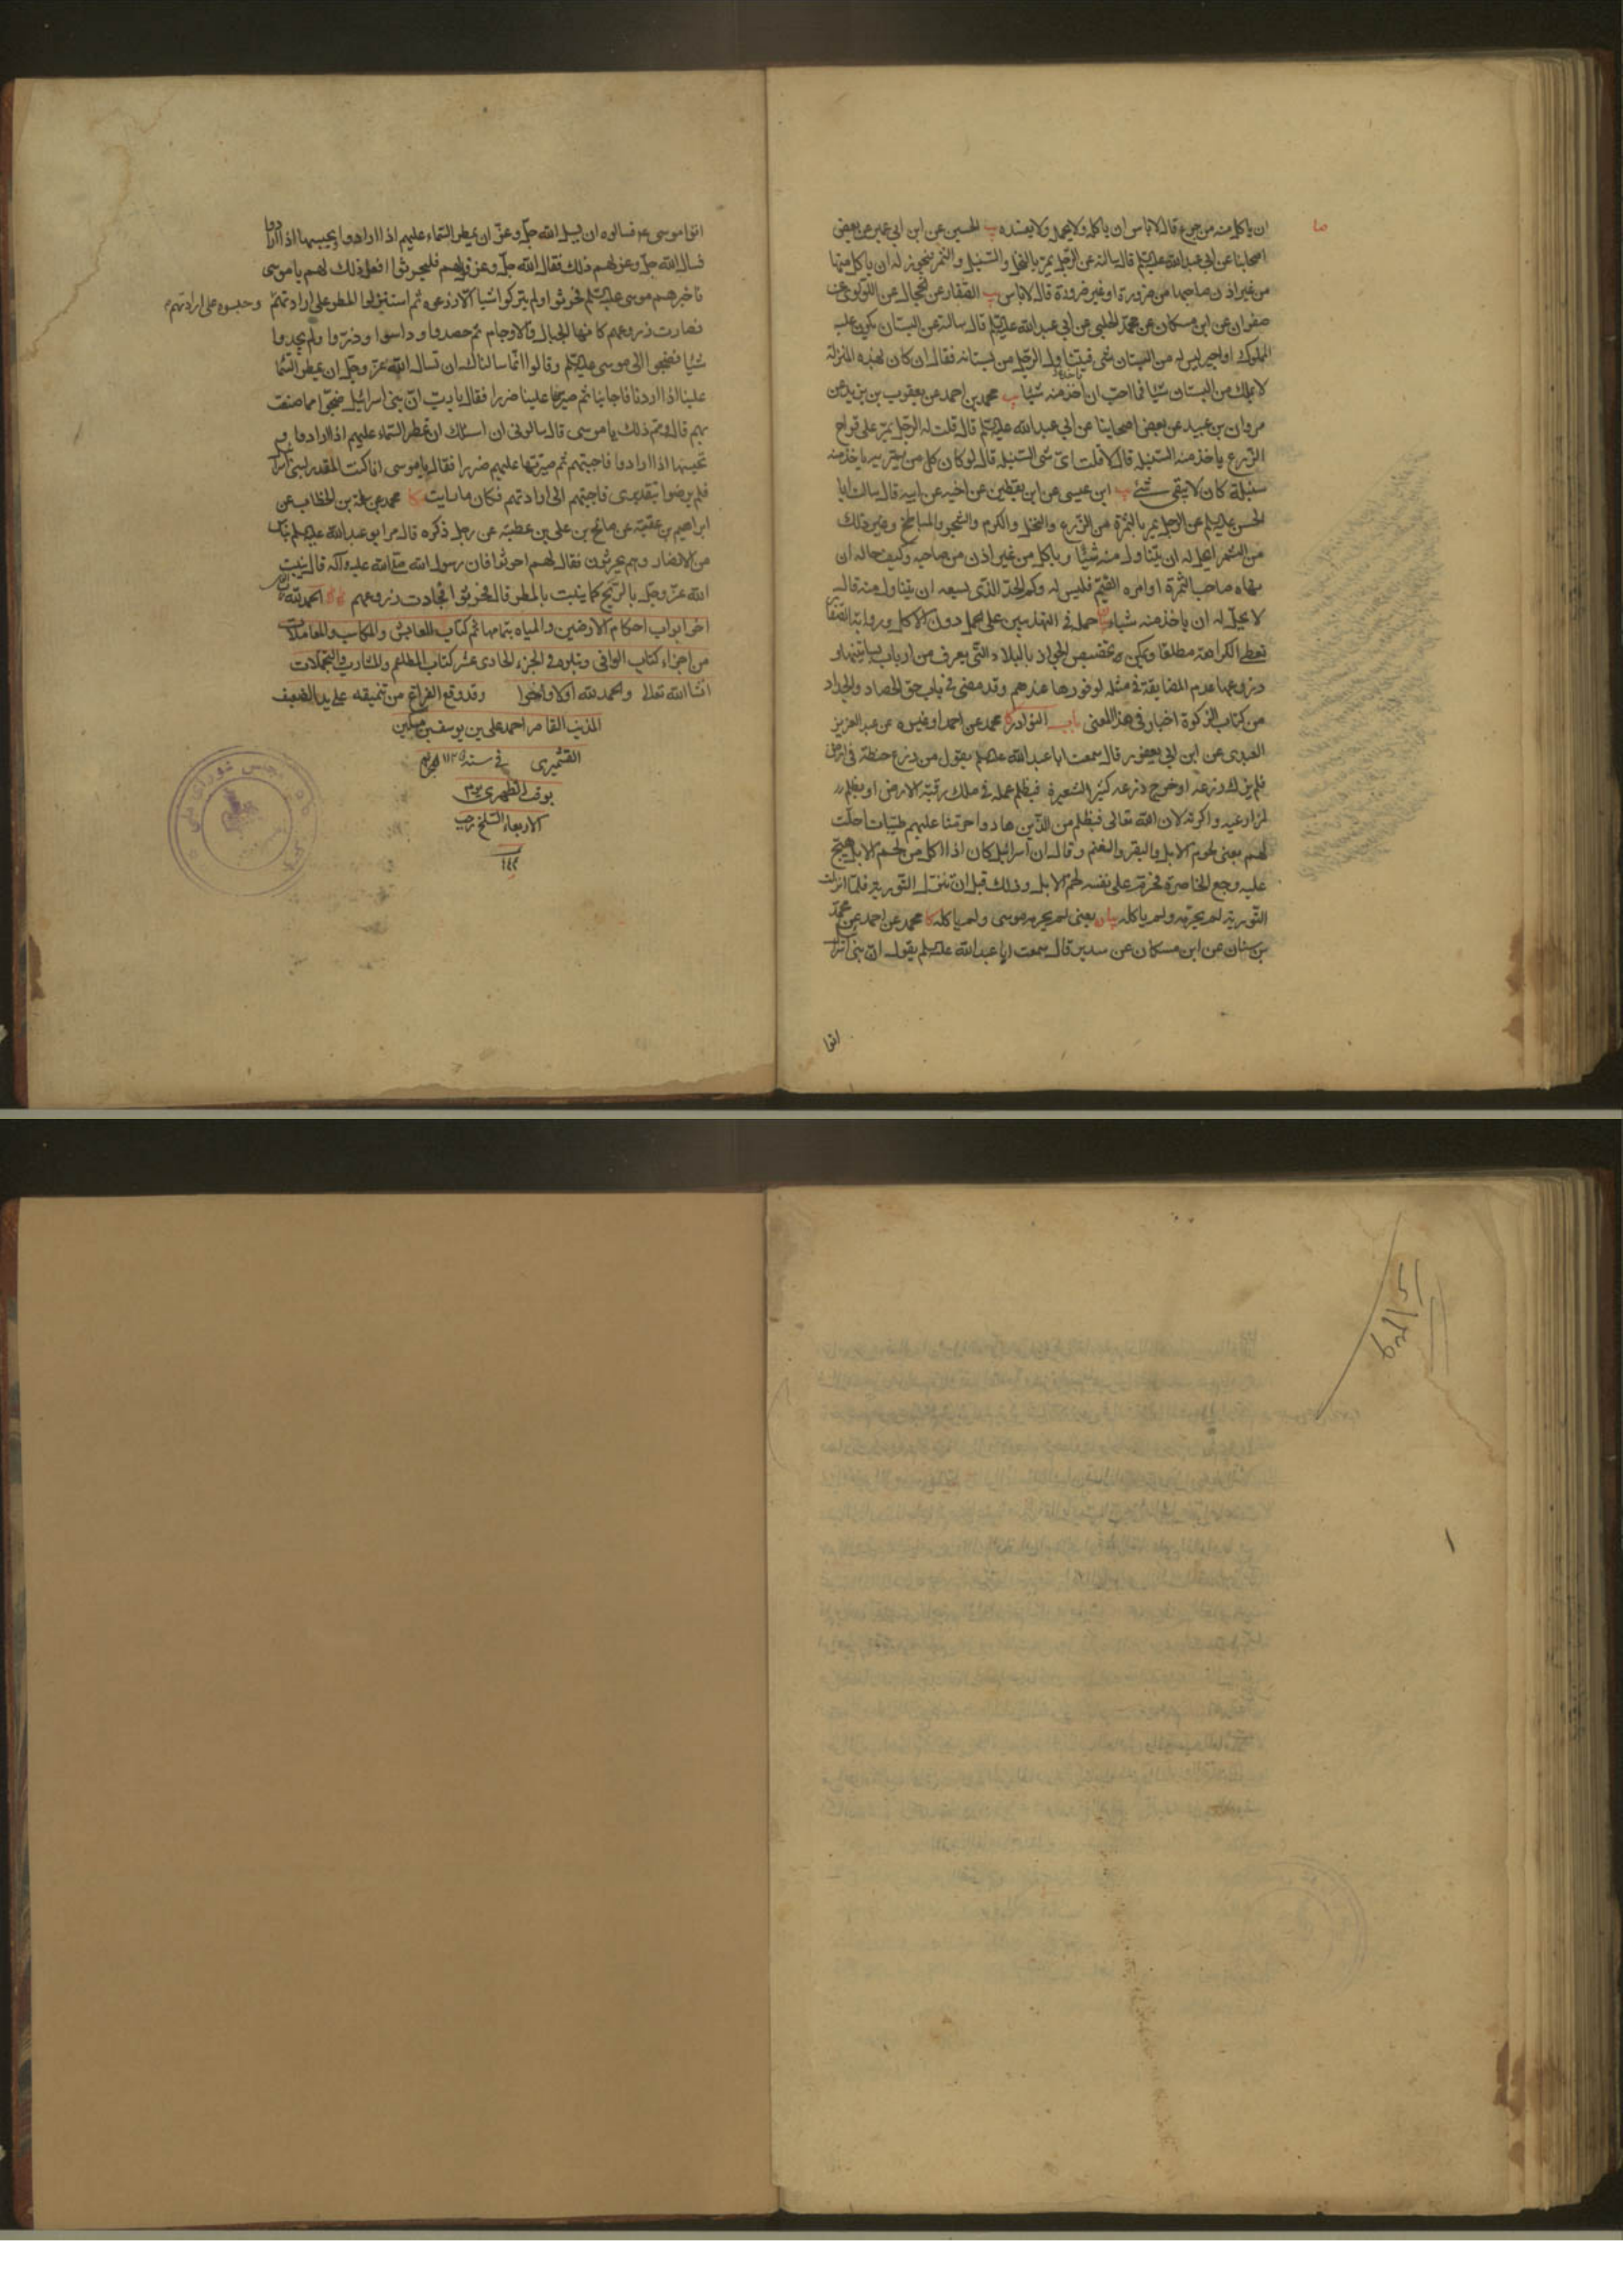 ان ياكل منه من جوع قال لا باس ان ياكله ولا يحمل ولا يفسده يب الحسين عن ابن ابي عمير عن بعض
اصحابنا عن ابي عبدالله عليه السلم قال سالته عن الرجل يمر بالنخل والسنبل والثمر فيجوز له ان ياكل منها
من غير اذن صاحبها من ضرورة او غير ضرورة قال لا باس يب الصفار عن الحجال عن اللولوي عن
صفوان عن ابن مسكان عن محمد الحلبي عن ابي عبدالله عليه السلم قال سالته عن البستان يكون عليه
المملوك او اجير ليس له من البستان شئ فيتناول الرجل من بستانه فقال ان كان بهذه المنزلة
لا يملك من البستان شيا فما احب ان ياخذ منه شيا يب محمد بن احمد عن يعقوب بن يزيد عن
مروان بن عبيد عن بعض اصحابنا عن ابي عبدالله عليه السلم قال قلت له الرجل يمر على قراح
الزرع ياخذ منه السنبله قال لا قلت اى شى السنبله قال لو كان كل من يمر به ياخذ منه
سنبلة كان لا يبقى شئ يب ابن عيسى عن ابن يقطين عن اخيه عن ابيه قال سالت ابا
الحسن عليه السلم عن الرجل يمر بالثمرة من الزرع والنخل والكرم والشجر والمباطخ وغير ذلك
من الثمر ايحل له ان يتناول منه شيئا وياكل من غير اذن من صاحبه وكيف حاله ان
نهاه صاحب الثمرة او امره القيم فليس له وكم الحد الذى يسعه ان يتناول منه قال
لا يحل له ان ياخذ منه شيا بيان حمله في التهذيبين على الحمل دون الاكل ورواية الصفار
تعطى الكراهة مطلقا ويمكن تخصيص الجواز بالبلاد التى يعرف من ارباب بساتينها و
زروعها عدم المضايقة في مثله لوفورها عندهم وقد مضى في باب حق الحصاد والجداد
من كتاب الزكوة اخبار في هذا المعنى باب النوادر كا محمد عن احمد او غيره عن عبد العزيز
العبدى عن ابن ابي يعفور قال سمعت ابا عبدالله عليه السلم يقول من زرع حنطة في ارض
فلم يزك زرعه او خرج زرعه كثير الشعير فبظلم عمله في ملك رقبة الارض او بظلم
لمزارعيه واكرته لان الله تعالى فبظلم من الذين هادوا حرمنا عليهم طيبات احلت
لهم يعنى لحوم الابل والبقر والغنم وقال ان اسرائيل كان اذا اكل من لحم الابل هيج
عليه وجع الخاصرة فحرم على نفسه لحم الابل وذلك قبل ان تنزل التورية فلما انزلت
التورية لم يحرمه ولم ياكله بيان يعنى لم يحرمه موسى ولم ياكله كا محمد عن احمد عن محمد
بن سنان عن ابن مسكان عن سدير قال سمعت ابا عبدالله عليه السلم يقول ان بنى اسرائيل
اتوا
اتوا موسى ع فسالوه ان يسال الله جل وعز ان يمطر السماء عليهم اذا ارادوا ويحبسها اذا ارادوا
فسال الله جل وعز لهم ذلك فقال الله جل وعز ذلك لهم يا موسى
فاخبرهم موسى عليه السلم فحرثوا ولم يتركوا شيا الا زرعوه ثم استنزلوا المطر على ارادتهم وحبسوه على ارادتهم
فصارت زروعهم كانها الجبال والاجام ثم حصدوا وداسوا وذروا ولم يجدوا
شيا فضجوا الى موسى عليه السلم وقالوا انما سالناك ان تسال الله عز وجل ان يمطر السما
علينا اذا اردنا فاجابنا ثم صيرها علينا ضررا فقال يا رب ان بنى اسرائيل ضجوا مما صنعت
بهم قال ومم ذلك يا موسى قال سالونى ان اسئلك ان تمطر السماء عليهم اذا ارادوا و
تحبسها اذا ارادوا فاجبتهم ثم صيرتها عليهم ضررا فقال يا موسى انا كنت المقدر لبنى اسرائيل
فلم يرضوا بتقديرى فاجبتهم الى ارادتهم فكان ما رايت كا محمد بن الخطاب عن
ابراهيم بن عقبة عن صالح بن على بن عطية عن رجل ذكره قال مر ابو عبدالله عليه السلم بناس
من الانصار وهم يحرثون فقال لهم احرثوا فان رسول الله صلى الله عليه وآله قال ينبت
الله عز وجل بالريح كما ينبت بالمطر قال فحرثوا فجادت زروعهم الحمد لله
اخر ابواب احكام الارضين والمياه بتمامها تم كتاب المعايش والمكاسب والمعاملات
من اجزاء كتاب الوافى ويتلوه في الجزء الحادى عشر كتاب المطاعم والمشارب والتجملات
انشا الله تعالى والحمد لله اولا واخرا وقد وقع الفراغ من تنميقه على يد الضعيف
المذنب القاصر احمد على بن يوسف
القشميرى في سنة ١١٢٥
بوقت الظهر فى يوم
الاربعاء السلخ رجب